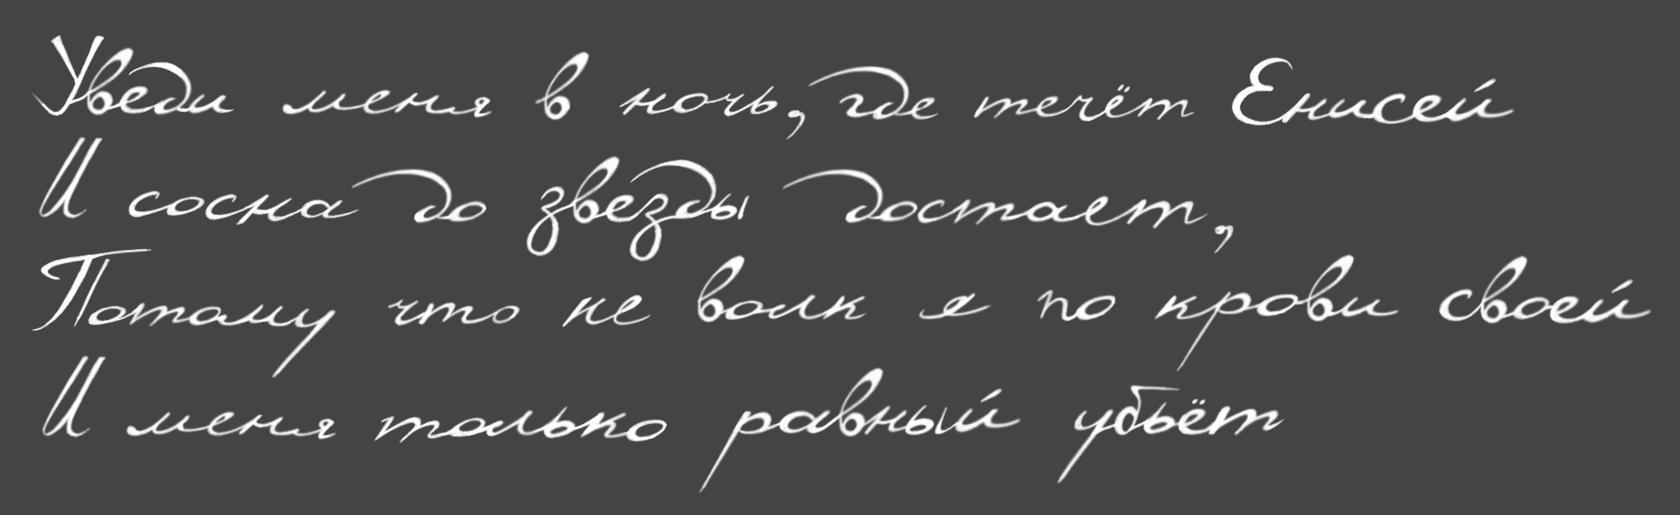 Уведи меня в ночь, где течёт Енисей
И сосна до звезды достает,
Потому что не волк я по крови своей
И меня только равный убьёт